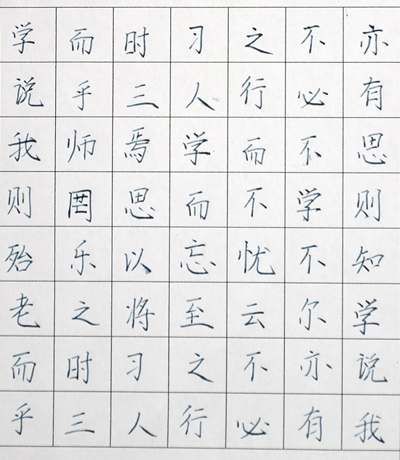 学而时习之不亦
说乎三人行必有
我师焉学而不思
则罔思而不学则
殆乐以忘忧不知
老之将至云尔学
而时习之不亦说
乎三人行必有我